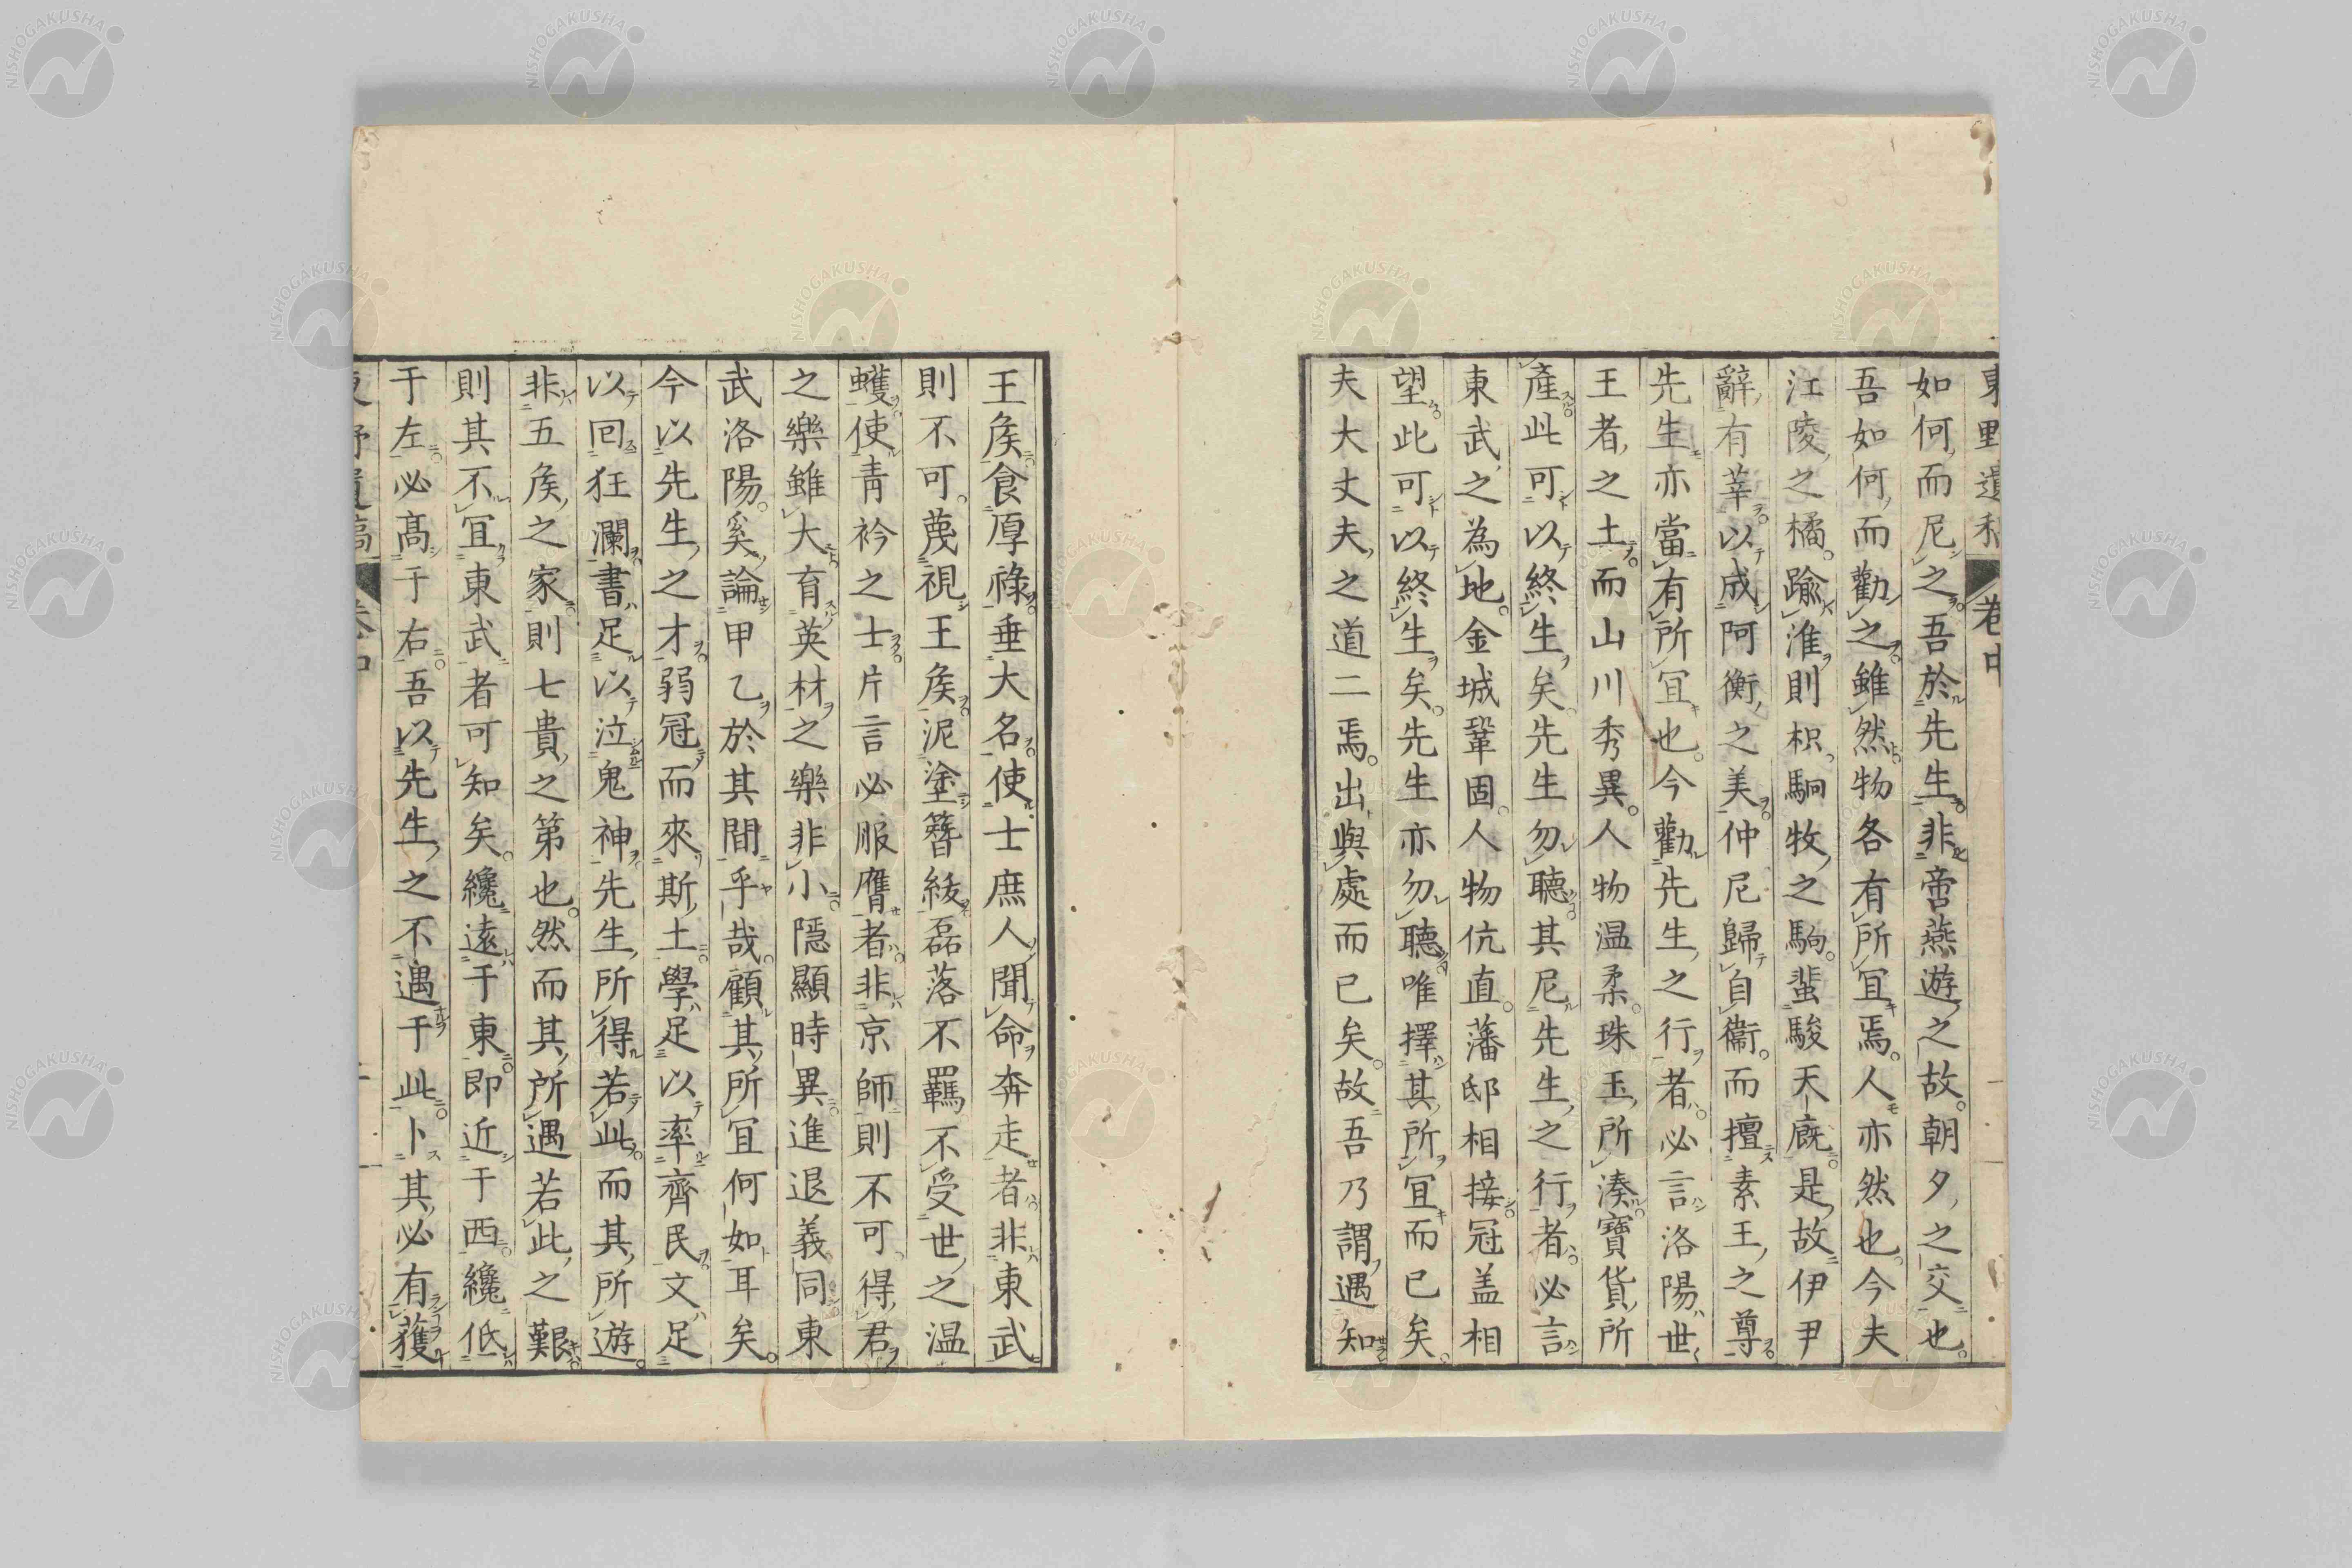 東野遺稿 卷中
如何而尼之吾於先生非啻燕遊之故朝夕之交也
吾如何而勸之雖然物各有所宜焉人亦然也今夫
江陵之橘踰淮則枳駉牧之駒蜚駿天廐是故伊尹
辭有莘以成阿衡之美仲尼歸自衞而擅素王之尊
先生亦當有所宜也今勸先生之行者必言洛陽世
王者之土而山川秀異人物温柔珠玉所湊寶貨所
產此可以終生矣先生勿聽其尼先生之行者必言
東武之為地金城鞏固人物伉直藩邸相接冠盖相
望此可以終生矣先生亦勿聽唯擇其所宜而已矣
夫大丈夫之道二焉出與處而已矣故吾乃謂遇知
王矦食厚祿垂大名使士庶人聞命奔走者非東武
則不可蔑視王矦泥塗簪紱磊落不羈不受世之温
蠖使青衿之士片言必服膺者非京師則不可得君
之樂雖大育英材之樂非小隱顯時異進退義同東
武洛陽奚論甲乙於其間乎哉顧其所宜何如耳矣
今以先生之才弱冠而來斯土學足以率齊民文足
以囘狂瀾書足以泣鬼神先生所得若此而其所遊
非五矦之家則七貴之第也然而其所遇若此之艱
則其不宜東武者可知矣纔遠于東即近于西纔低
于左必高于右吾以先生之不遇于此卜其必有獲
東野遺稿 卷中